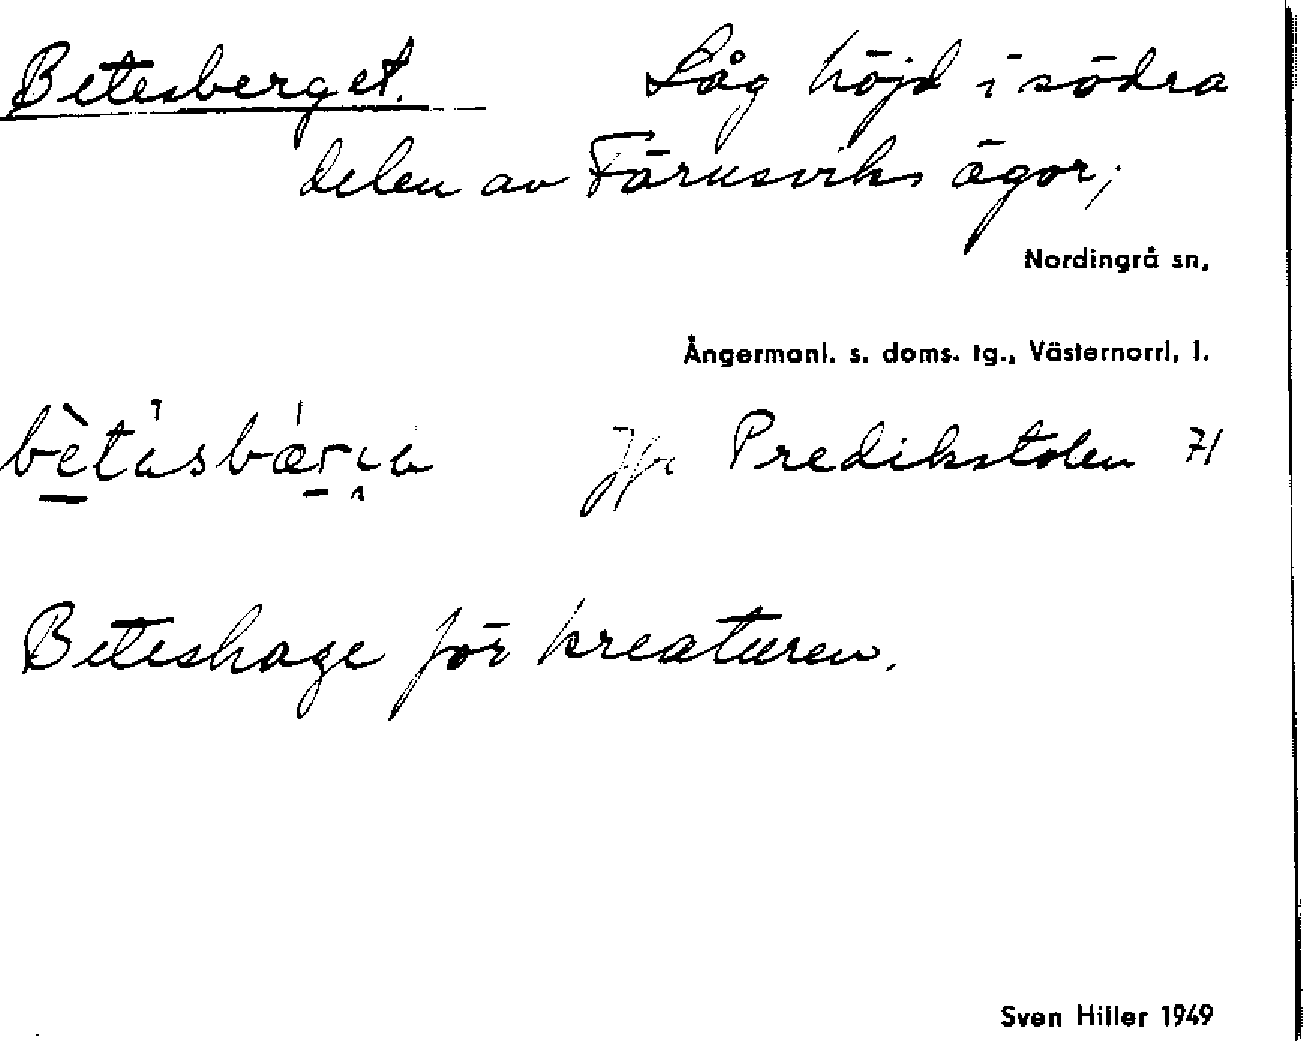 Betesberget. Låg höjd i södra
delen av Färnsviks ägor;
Nordingrå sn,
Ångermanl. s. doms. tg., Västernorrl. l.
Jfr Predikstolen
Beteshage för kreaturen.
Sven Hiller 1949